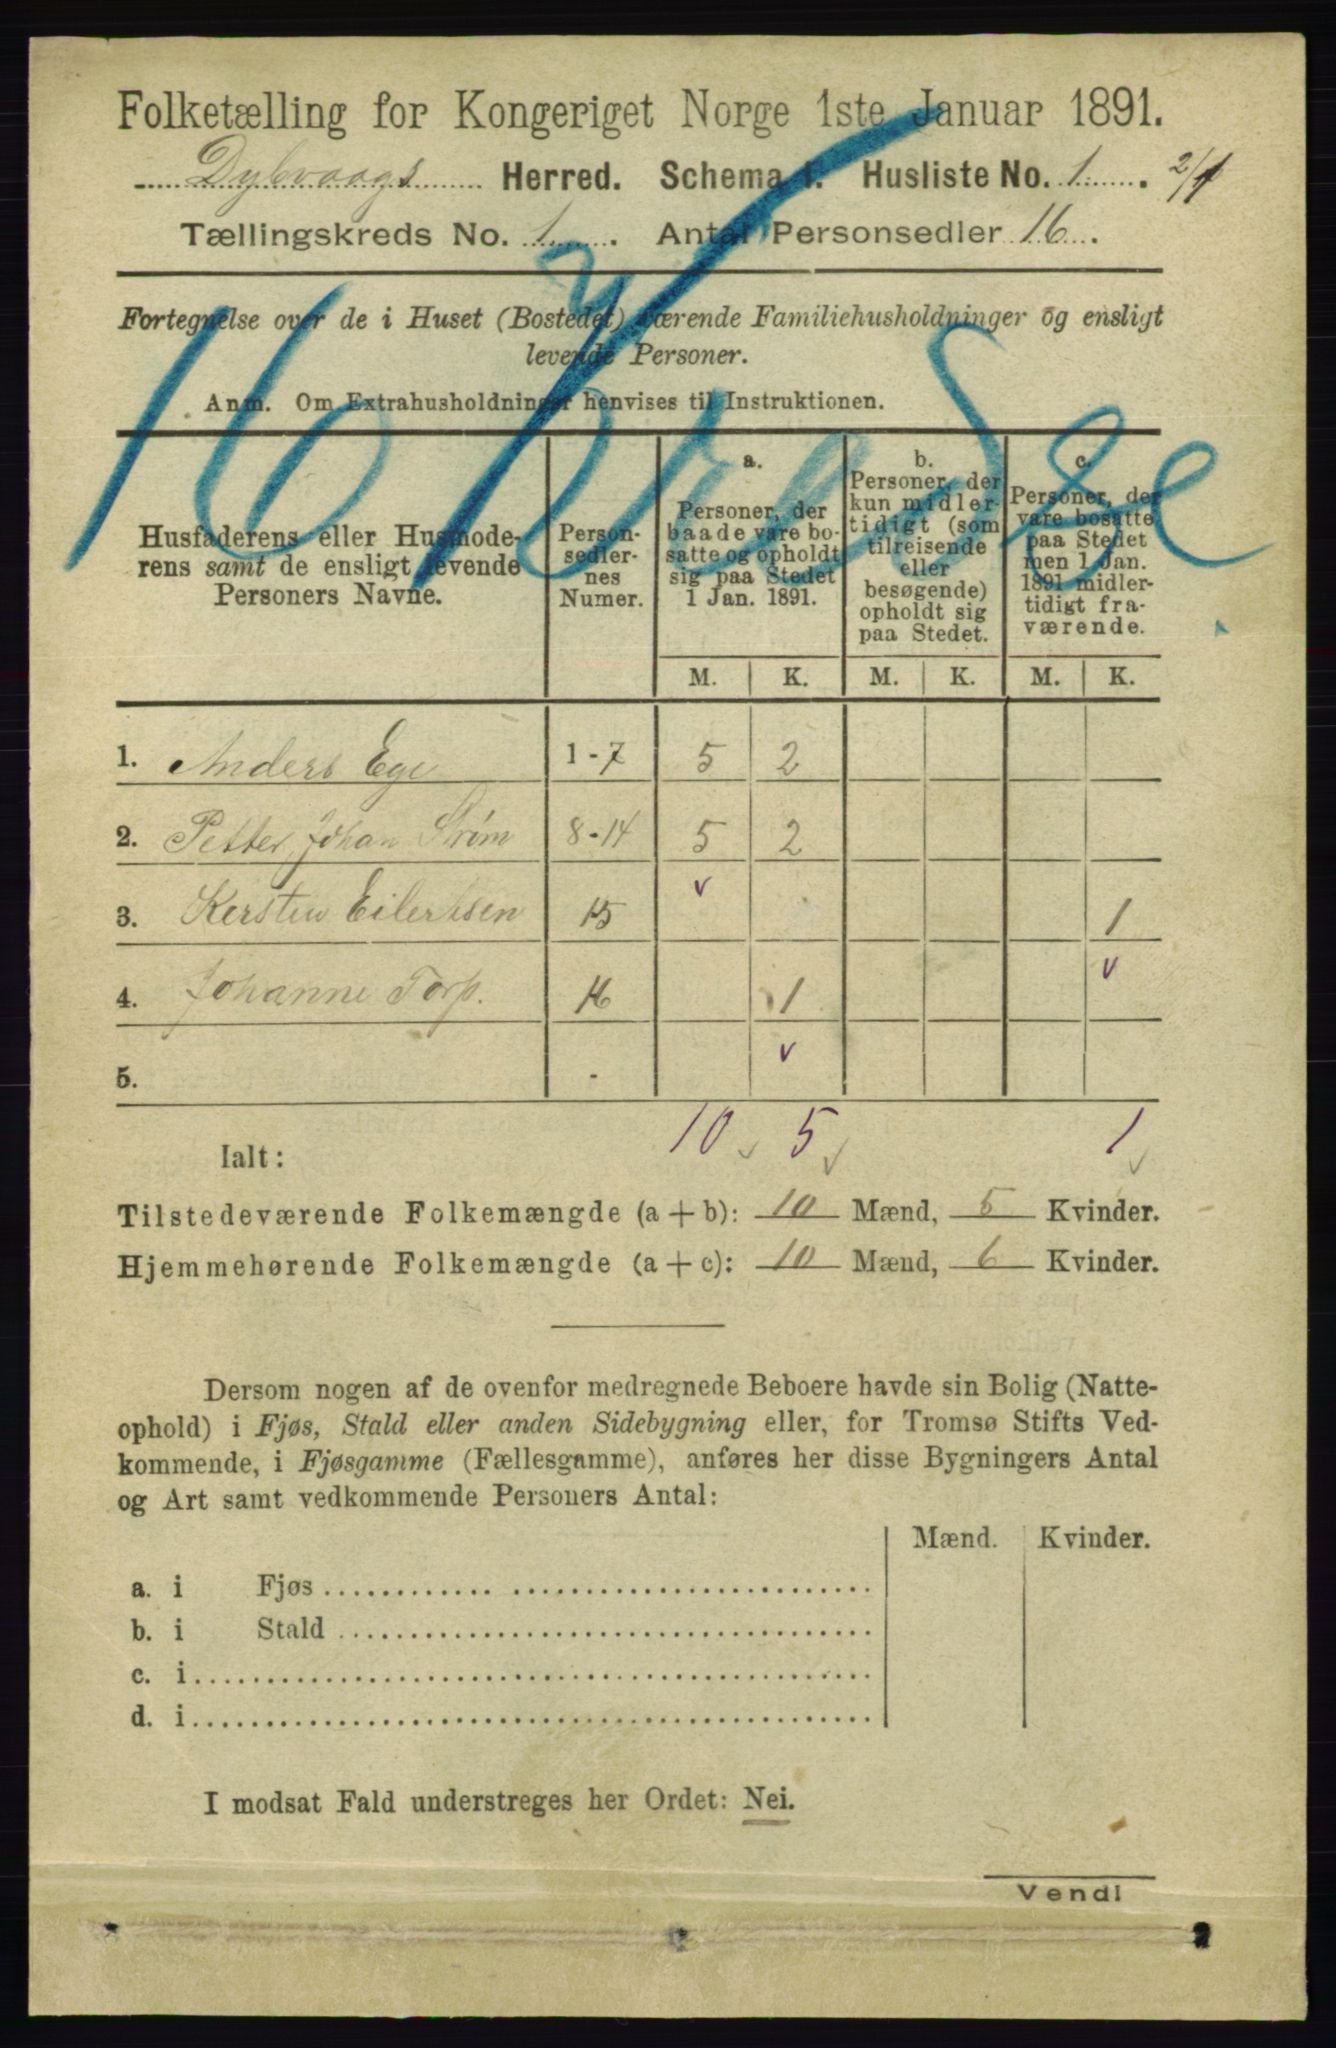 Folketælling for Kongeriget Norge 1ste Januar 1891.
Dybvaags Herred. Schema I. Husliste No. 1. 2/1
Tællingskreds No. 1. Antal Personsedler 16.
Fortegnelse over de i Huset (Bostedet) værende Familiehusholdninger og ensligt
levende Personer.
Anm. Om Extrahusholdninger henvises til Instruktionen.
16
Husfaderens eller Husmode-
rens samt de ensligt levende
Personers Navne.
Person-
sedler-
nes
Numer.
a.
Personer, der
baade vare bo-
satte og opholdt
sig paa Stedet
1 Jan. 1891.
b.
Personer, der
kun midler-
tidigt (som
tilreisende
eller
besøgende)
opholdt sig
paa Stedet.
c.
Personer, der
vare bosatte
paa Stedet
men 1 Jan.
1891 midler-
tidigt fra-
værende.
M. K. M. K. M. K.
1. Anders Ege 1 - 7 5 2
2. Petter Johan Strøm 8 - 14 5 2
3. Kersten Eilertsen 15 1
4. Johanne Torp. 16 1
5. -
Ialt: 10 5 1
Tilstedeværende Folkemængde (a + b): 10 Mænd, 5 Kvinder.
Hjemmehørende Folkemængde (a + c): 10 Mænd, 6 Kvinder.
Dersom nogen af de ovenfor medregnede Beboere havde sin Bolig (Natte-
ophold) i Fjøs, Stald eller anden Sidebygning eller, for Tromsø Stifts Ved-
kommende, i Fjøsgamme (Fællesgamme), anføres her disse Bygningers Antal
og Art samt vedkommende Personers Antal:
Mænd. Kvinder.
a. i Fjøs
b. i Stald
c. i
d. i
I modsat Fald understreges her Ordet: Nei.
Vend!